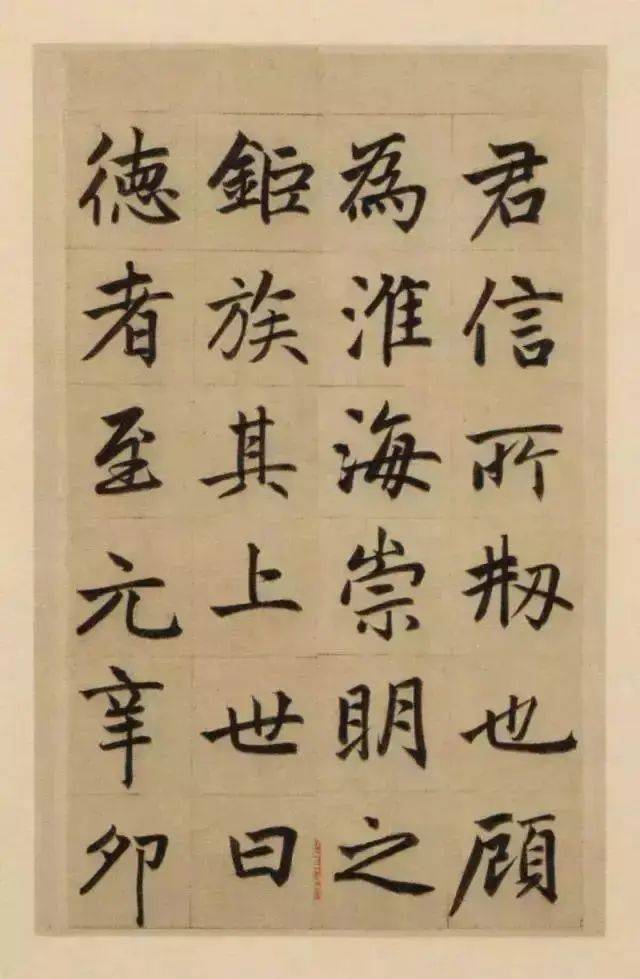 君信所剏也顧
為淮海崇明之
鉅族其上世曰
德者至元辛卯